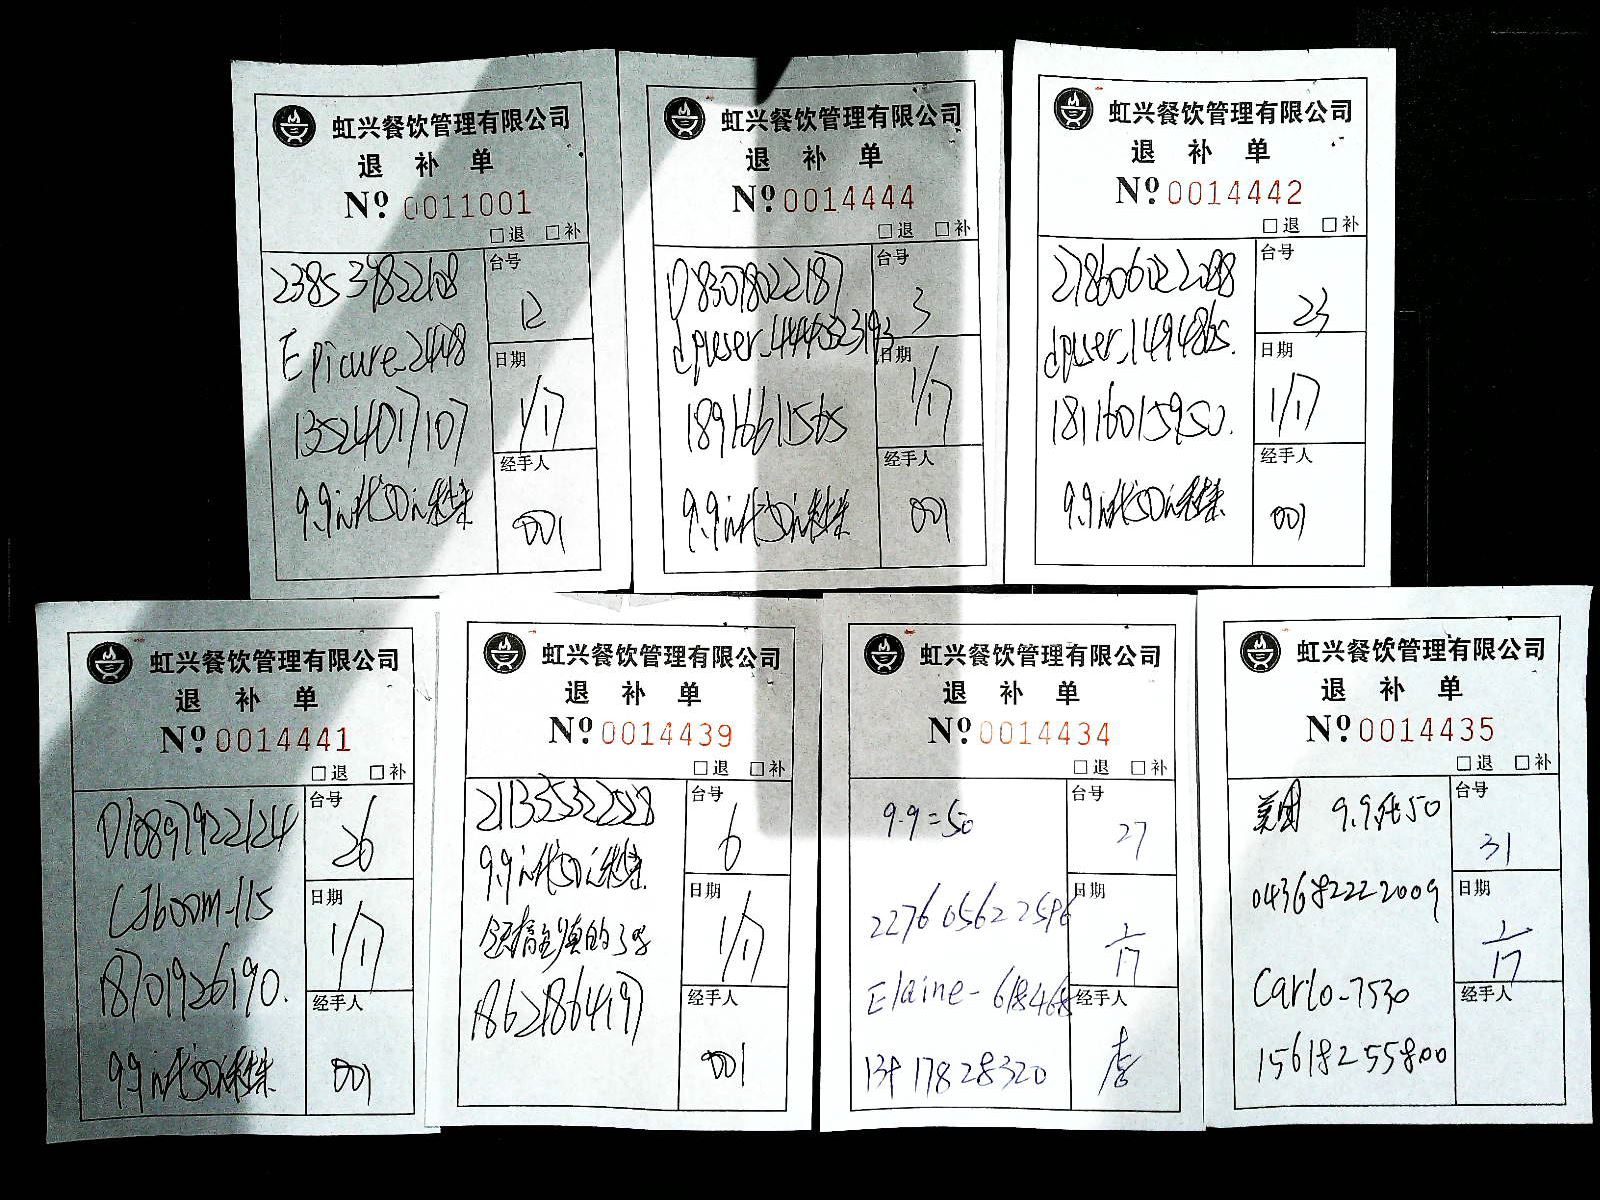 虹兴餐饮管理有限公司
退 补 单
Nº 0011001
□退 □补
台号
12
日期
1/17
经手人
001
238534822108
Epicure_2448
13524017107
9.9 代50
虹兴餐饮管理有限公司
退 补 单
Nº 0014444
□退 □补
台号
3
日期
1/17
经手人
001
0183078022187
dpuser_
18916611565
9.9 代50
虹兴餐饮管理有限公司
退 补 单
Nº 0014442
□退 □补
台号
23
日期
1/17
经手人
001
dpuser_
18116015950.
9.9 代50
虹兴餐饮管理有限公司
退 补 单
Nº 0014441
□退 □补
台号
26
日期
1/17
经手人
001
010897922124
18701926190.
9.9 代50
虹兴餐饮管理有限公司
退 补 单
Nº 0014439
□退 □补
台号
6
日期
1/17
经手人
001
9.9 代50
18621864197
虹兴餐饮管理有限公司
退 补 单
Nº 0014434
□退 □补
台号
27
日期
1/17
经手人
李
9.9=50
227605622596
Elaine-618468
13917828320
虹兴餐饮管理有限公司
退 补 单
Nº 0014435
□退 □补
台号
31
日期
1/17
经手人
美团 9.9代50
043682222009
Carlo-7530
15618255800